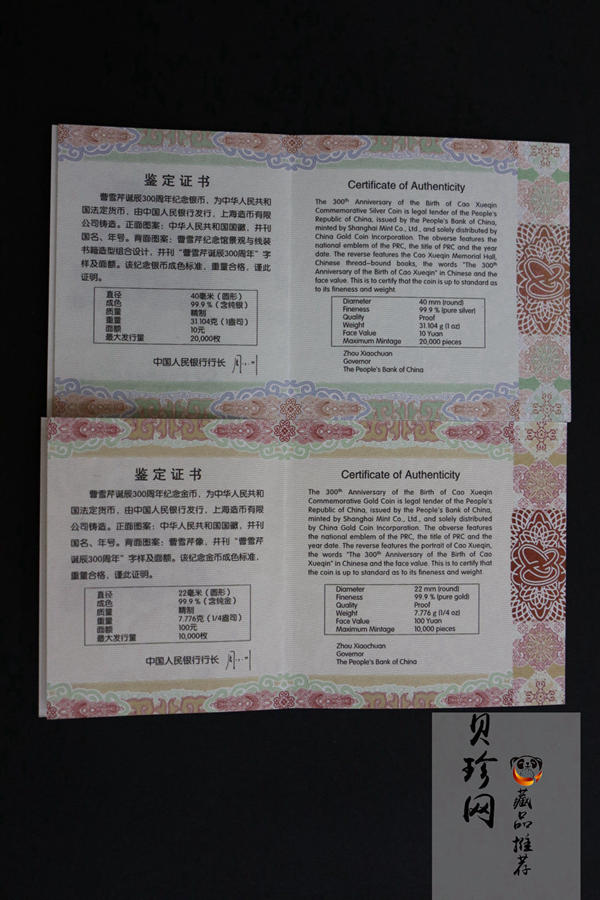 鉴定证书
曹雪芹诞辰300周年纪念银币，为中华人民共和
国法定货币，由中国人民银行发行，上海造币有限
公司铸造。正面图案：中华人民共和国国徽，并刊
国名、年号。背面图案：曹雪芹纪念馆景观与线装
书籍造型组合设计，并刊“曹雪芹诞辰300周年”字
样及面额。该纪念银币成色标准，重量合格，谨此
证明。
直径 40毫米（圆形）
成色 99.9%（含纯银）
质量 精制
重量 31.104克（1盎司）
面额 10元
最大发行量 20,000枚
中国人民银行行长
Certificate of Authenticity
The 300th Anniversary of the Birth of Cao Xueqin
Commemorative Silver Coin is legal tender of the People's
Republic of China, issued by the People's Bank of China,
minted by Shanghai Mint Co., Ltd., and solely distributed by
China Gold Coin Incorporation. The obverse features the
national emblem of the PRC, the title of PRC and the year
date. The reverse features the Cao Xueqin Memorial Hall,
Chinese thread-bound books, the words "The 300th
Anniversary of the Birth of Cao Xueqin" in Chinese and the
face value. This is to certify that the coin is up to standard as
to its fineness and weight.
Diameter 40 mm (round)
Fineness 99.9 % (pure silver)
Quality Proof
Weight 31.104 g (1 oz)
Face Value 10 Yuan
Maximum Mintage 20,000 pieces
Zhou Xiaochuan
Governor
The People's Bank of China
鉴定证书
曹雪芹诞辰300周年纪念金币，为中华人民共和
国法定货币，由中国人民银行发行，上海造币有限
公司铸造。正面图案：中华人民共和国国徽，并刊
国名、年号。背面图案：曹雪芹像，并刊“曹雪芹
诞辰300周年”字样及面额。该纪念金币成色标准，
重量合格，谨此证明。
直径 22毫米（圆形）
成色 99.9%（含纯金）
质量 精制
重量 7.776克（1/4盎司）
面额 100元
最大发行量 10,000枚
中国人民银行行长
Certificate of Authenticity
The 300th Anniversary of the Birth of Cao Xueqin
Commemorative Gold Coin is legal tender of the People's
Republic of China, issued by the People's Bank of China,
minted by Shanghai Mint Co., Ltd., and solely distributed
by China Gold Coin Incorporation. The obverse features
the national emblem of the PRC, the title of PRC and the
year date. The reverse features the portrait of Cao Xueqin,
the words "The 300th Anniversary of the Birth of Cao
Xueqin" in Chinese and the face value. This is to certify that
the coin is up to standard as to its fineness and weight.
Diameter 22 mm (round)
Fineness 99.9 % (pure gold)
Quality Proof
Weight 7.776 g (1/4 oz)
Face Value 100 Yuan
Maximum Mintage 10,000 pieces
Zhou Xiaochuan
Governor
The People's Bank of China
贝珍网
藏品推荐